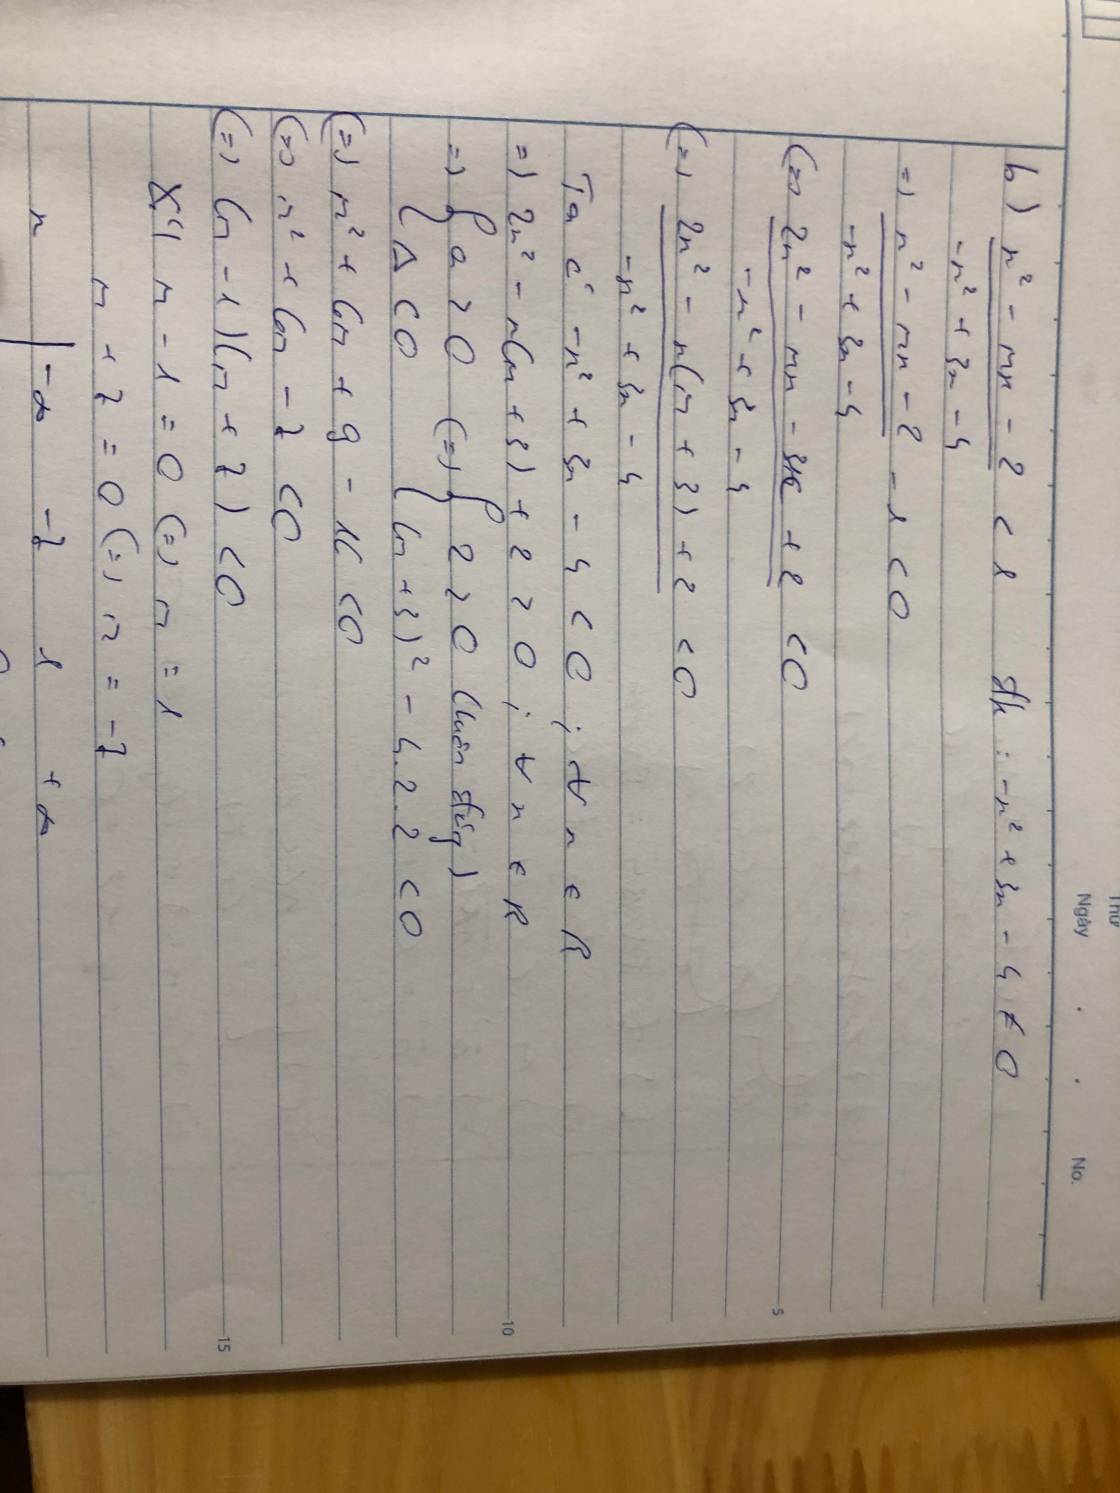 Thứ
Ngày . . No.
b) x² - mx - 2 < 1 đk : -x² + 3x - 4 ≠ 0
-x² + 3x - 4
=) x² - mx - 2 - 1 < 0
-x² + 3x - 4
(=) 2x² - mx - 3x + 2 < 0
-x² + 3x - 4
(=) 2x² - x(m + 3) + 2 < 0
-x² + 3x - 4
Ta có -x² + 3x - 4 < 0 ; ∀ x ∈ R
=) 2x² - x(m + 3) + 2 > 0 ; ∀ x ∈ R
=) { a > 0 (=) { 2 > 0 (luôn đúng)
{ Δ < 0 { (m + 3)² - 4.2.2 < 0
(=) m² + 6m + 9 - 16 < 0
(=) m² + 6m - 7 < 0
(=) (m - 1)(m + 7) < 0
Xét m - 1 = 0 (=) m = 1
m + 7 = 0 (=) m = -7
x | -∞ -7 1 +∞
5
10
15